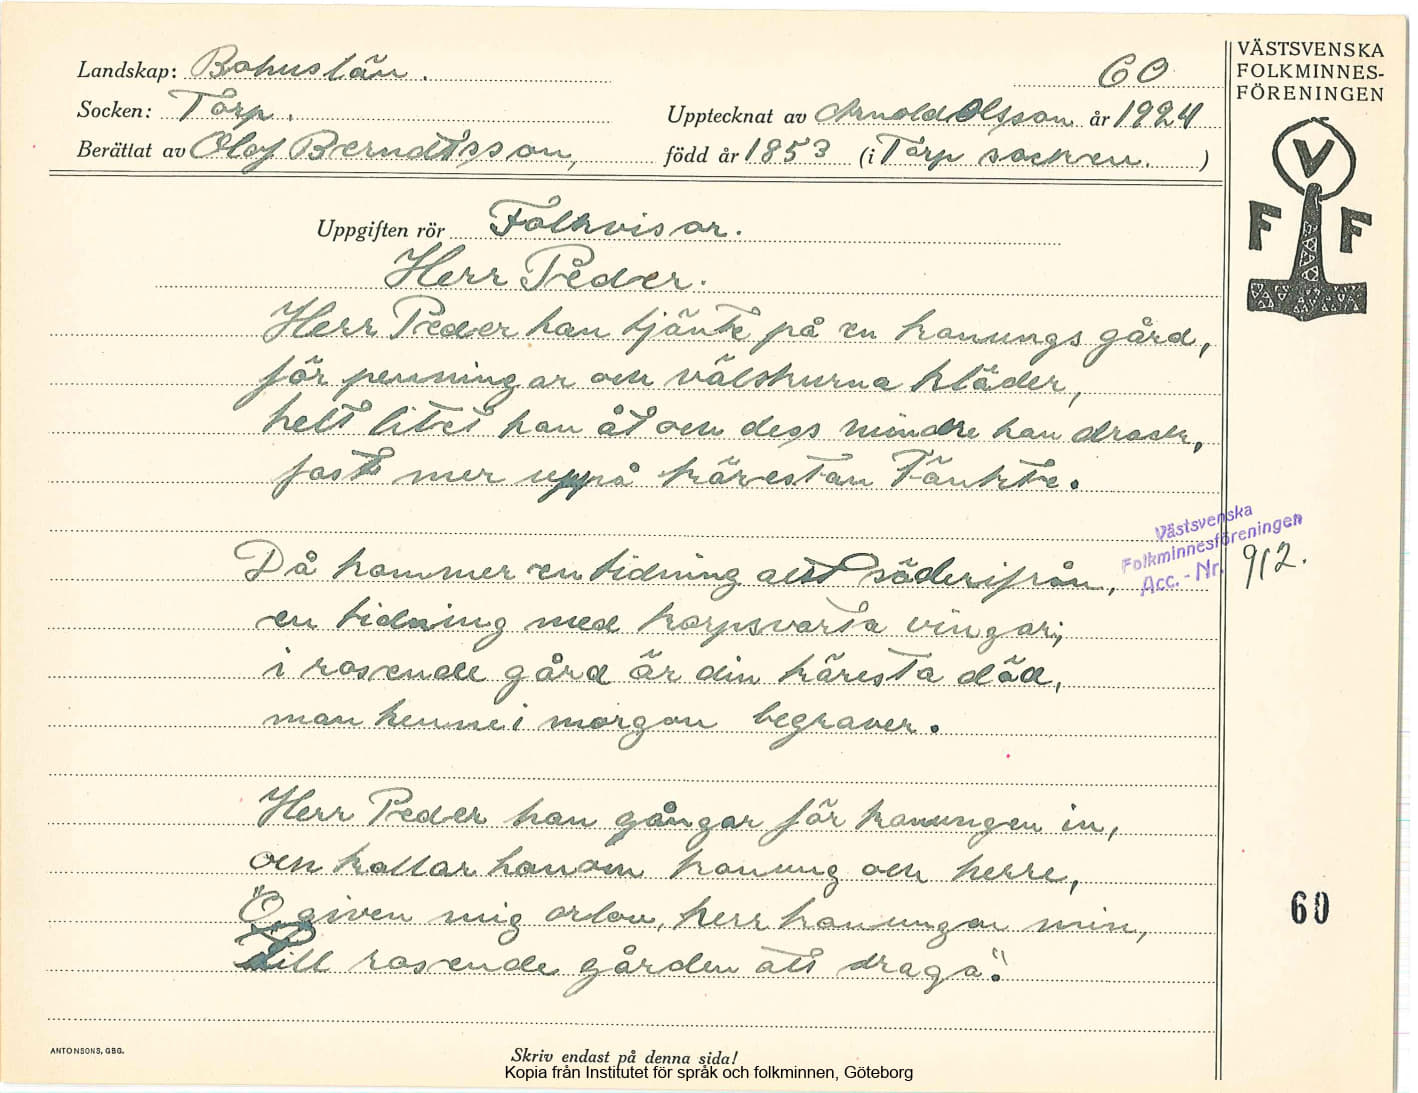 Landskap: Bohuslän.
60
VÄSTSVENSKA
FOLKMINNES-
FÖRENINGEN
Socken: Torp.
Upptecknat av Arnold Olsson år 1924
Berättat av Olof Berndtsson,
född år 1853 (i Torp socken. )
V
F F
Uppgiften rör Folkvisor.
Herr Peder.
Herr Peder han tjänte på en konungs gård,
för penningar och välskurna kläder,
helt litet han åt och dess mindre han drack,
fast mer uppå kärestan tänkte.
Då kommer en tidning allt söderifrån,
en tidning med korpsvarta vingar;
i rosende gård är din käresta död,
man henne i morgon begraver.
Västsvenska
Folkminnesföreningen
Acc. - Nr. 912.
Herr Peder han gångar för konungen in,
och kallar honom konung och herre,
"O, given mig orlov, herr konungen min,
till rosende gården att draga".
60
ANTONSONS, GBG.
Skriv endast på denna sida!
Kopia från Institutet för språk och folkminnen, Göteborg